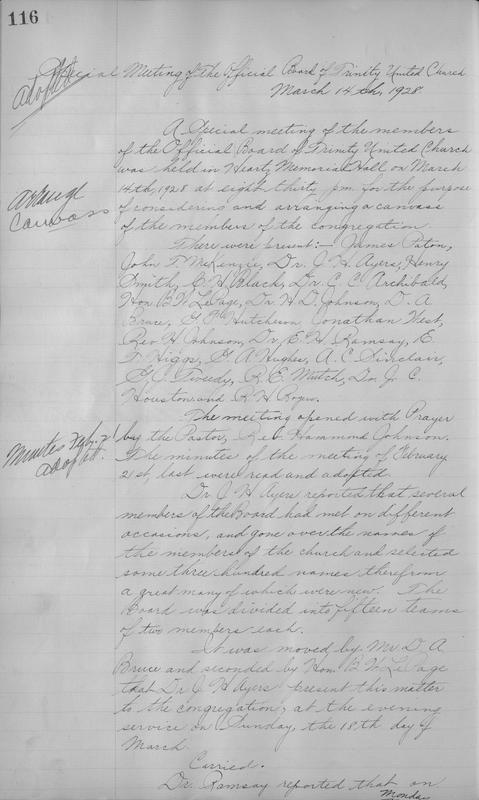 116
Special Meeting of the Official Board of Trinity United Church
adopted
March 14th, 1928
A Special meeting of the members
of the Official Board of Trinity United Church
was held in Heartz Memorial Hall on March
14th, 1928 at eight thirty p.m. for the purpose
arrange
of considering and arranging a canvass
canvass
of the members of the congregation
There were present:- James Paton,
John T. McKenzie, Dr. J. H. Ayers, Henry
Smith, C. H. Black, Dr. E. C. Archibald,
Hon B. W. LePage, Dr. H. D. Johnson, D. A
Bruce, G. F. Hutcheson, Jonathan West,
Rev H. Johnson, Dr. E. H. Ramsay, E.
T. Higgs, G. A Hughes, A. C. Sinclair,
G. J. Tweedy, R. E. Mutch, Dr. J. C.
Houston and R. H. Rogers.
The meeting opened with Prayer
Minutes Feb. 21
by the Pastor, Rev. Hammond Johnson.
adopted.
The minutes of the meeting of February
21st, last were read and adopted
Dr. J. H. Ayers reported that several
members of the Board had met on different
occasions, and gone over the names of
the members of the church and selected
some three hundred names therefrom
a great many of which were new. The
Board was divided into fifteen teams
of two members each.
It was moved by Mr. D. A
Bruce and seconded by Hon. B. W. LePage
that Dr. J. H. Ayers present this matter
to the congregation, at the evening
service on Sunday, the 18th. day of
March
Carried.
Dr. Ramsay reported that on
Monday